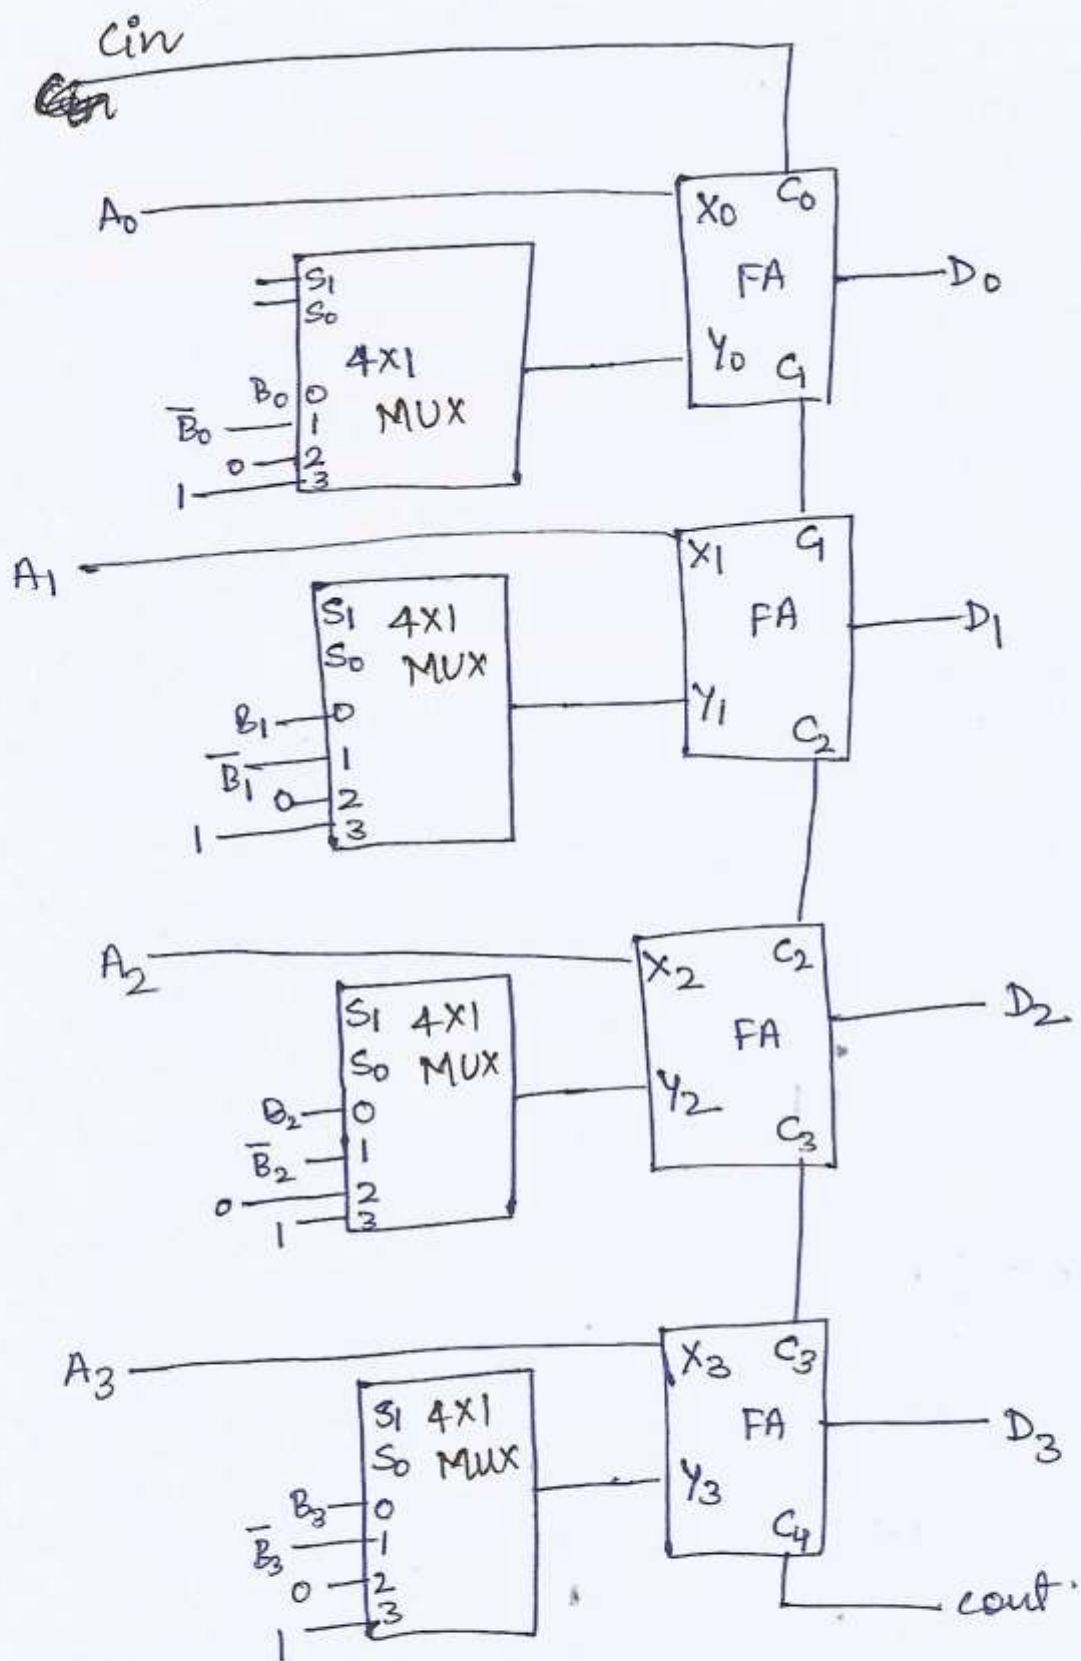 Cin
A₀
X₀ C₀
FA
Y₀ C₁
D₀
S₁
S₀
4X1
MUX
B₀ 0
B̅₀ 1
0 2
1 3
A₁
X₁ C₁
FA
Y₁
C₂
D₁
S₁ 4X1
S₀ MUX
B₁ 0
B̅₁ 1
0 2
1 3
A₂
X₂ C₂
FA
Y₂
C₃
D₂
S₁ 4X1
S₀ MUX
B₂ 0
B̅₂ 1
0 2
1 3
A₃
X₃ C₃
FA
Y₃
C₄
D₃
S₁ 4X1
S₀ MUX
B₃ 0
B̅₃ 1
0 2
1 3
cout.